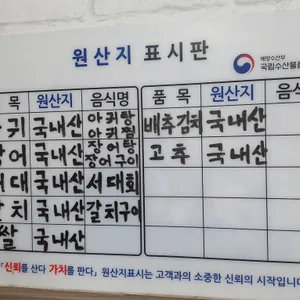 원산지 표시판
해양수산부
국립수산물품
목 원산지 음식명 품 목 원산지 음
귀 국내산 아귀탕 아귀찜 배추김치 국내산
어 국내산 장어탕 장어구이 고추 국내산
대 국내산 서대회
치 국내산 갈치구이
쌀 국내산
「신뢰를 산다 가치를 판다」 원산지표시는 고객과의 소중한 신뢰의 시작입니다